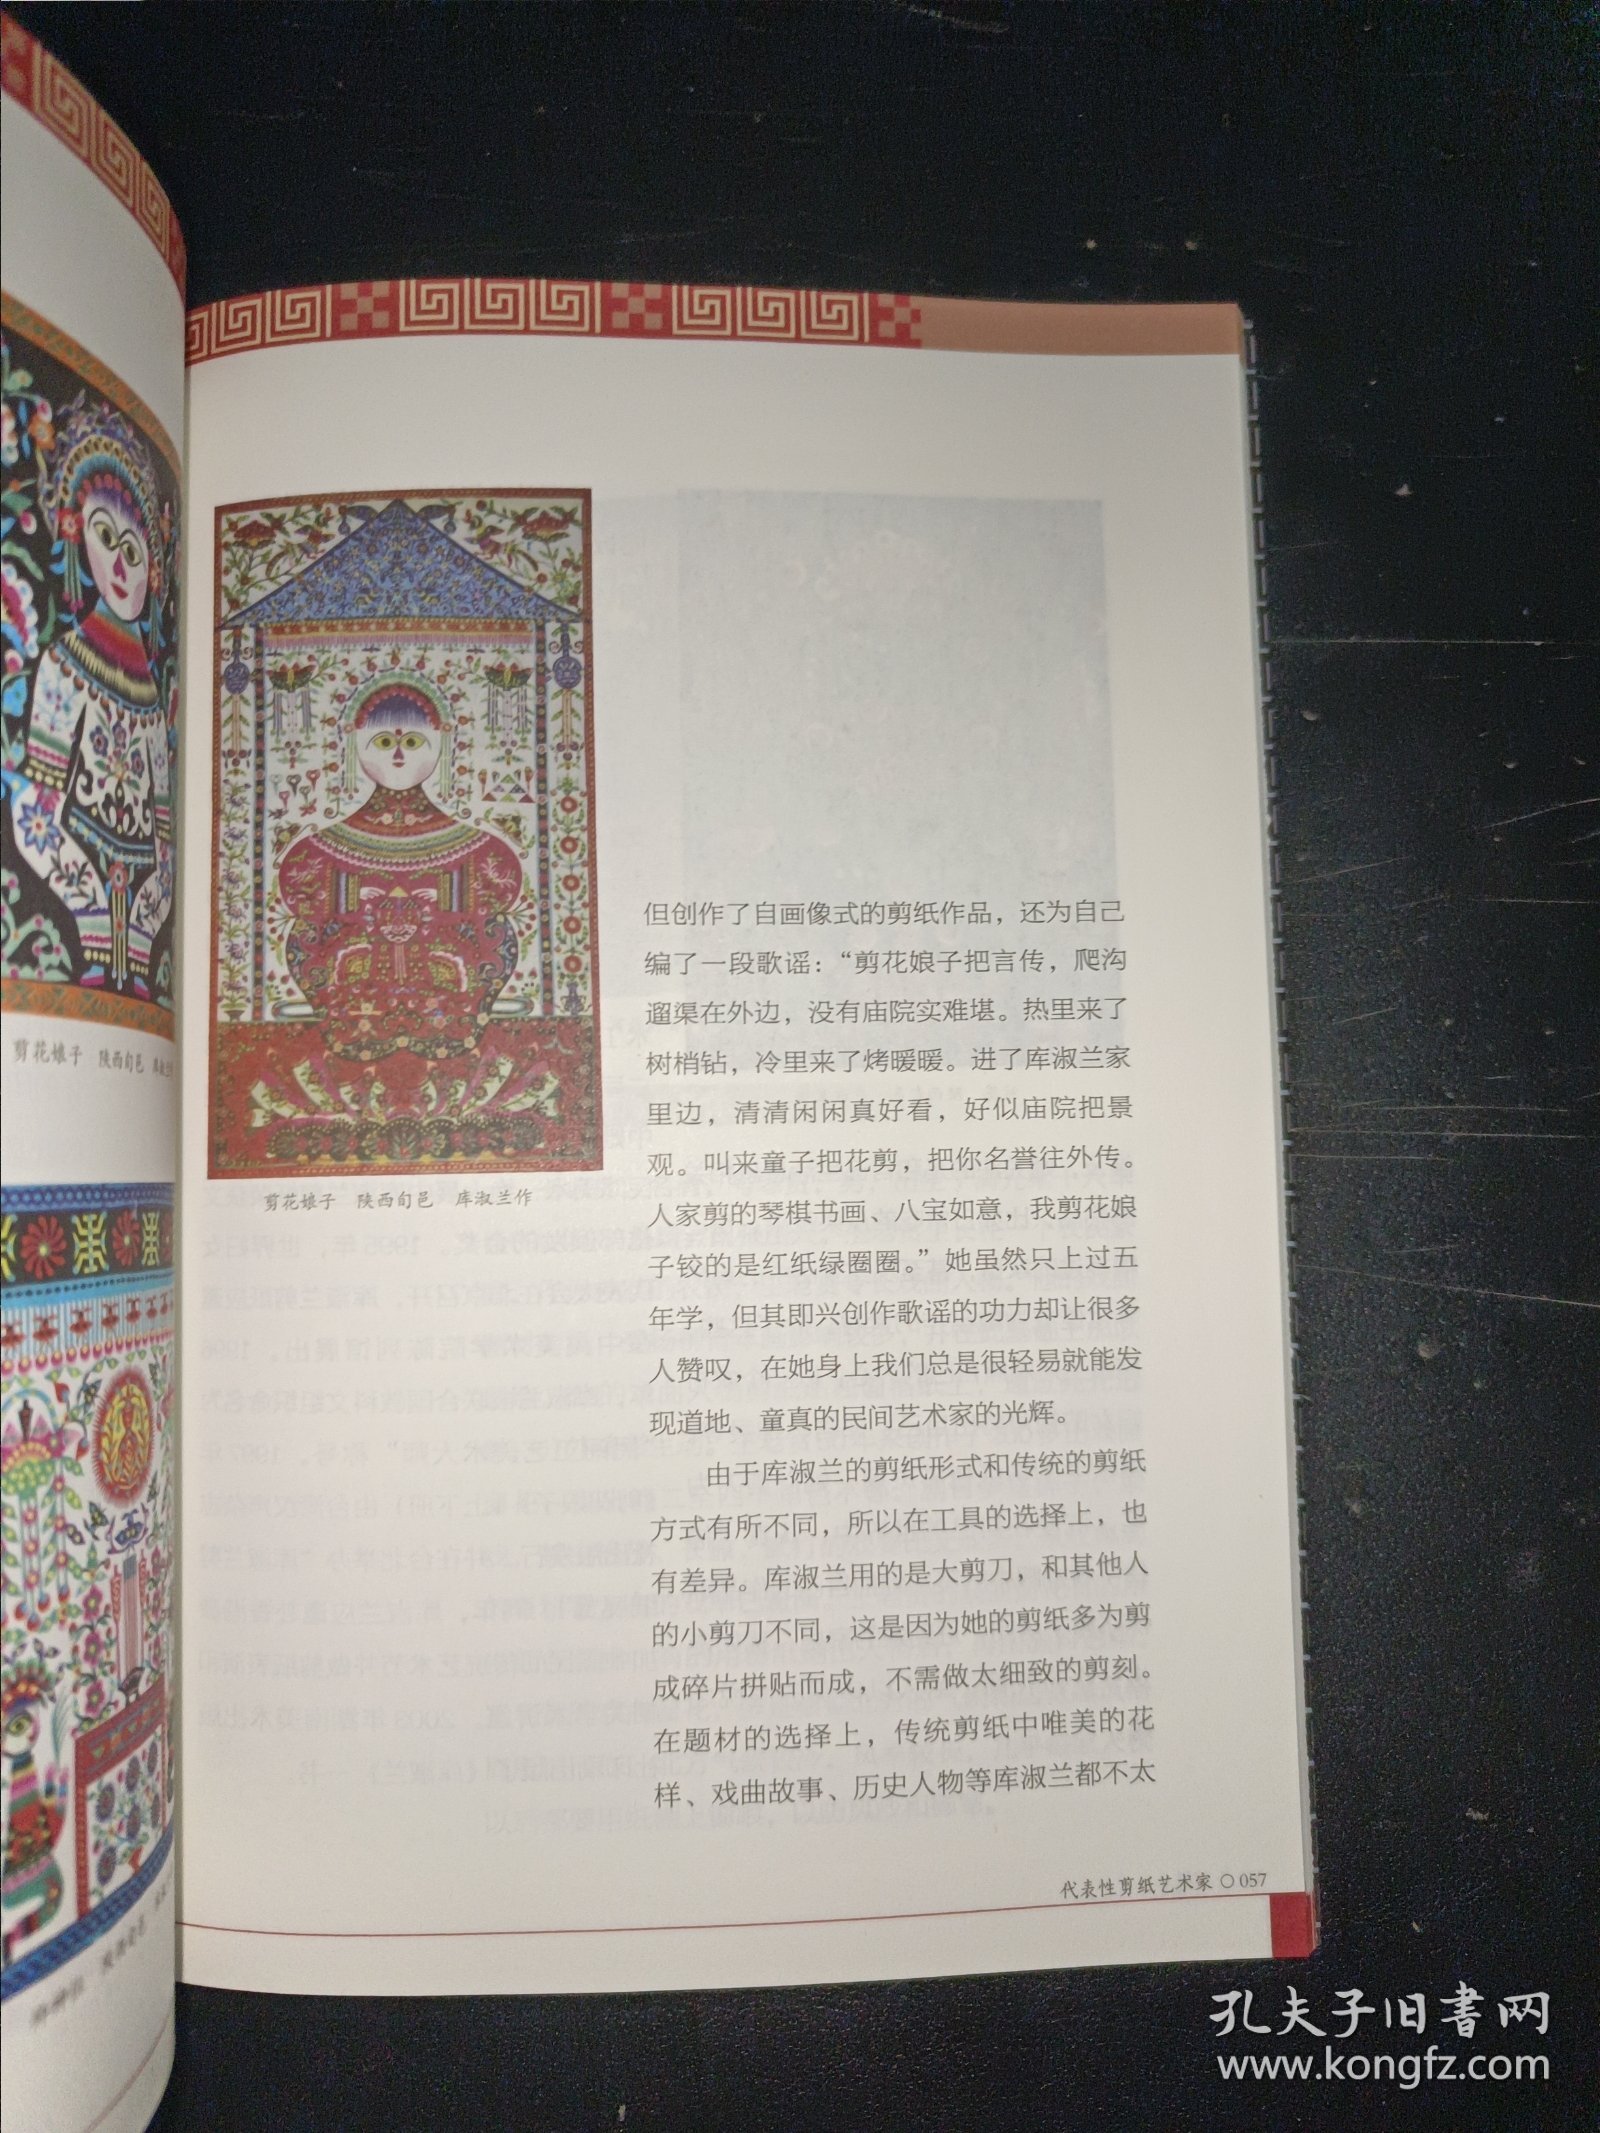 剪花娘子 陕西旬邑
剪花娘子 陕西旬邑 库淑兰作
但创作了自画像式的剪纸作品，还为自己
编了一段歌谣：“剪花娘子把言传，爬沟
遛渠在外边，没有庙院实难堪。热里来了
树梢钻，冷里来了烤暖暖。进了库淑兰家
里边，清清闲闲真好看，好似庙院把景
观。叫来童子把花剪，把你名誉往外传。
人家剪的琴棋书画、八宝如意，我剪花娘
子铰的是红纸绿圈圈。”她虽然只上过五
年学，但其即兴创作歌谣的功力却让很多
人赞叹，在她身上我们总是很轻易就能发
现道地、童真的民间艺术家的光辉。
由于库淑兰的剪纸形式和传统的剪纸
方式有所不同，所以在工具的选择上，也
有差异。库淑兰用的是大剪刀，和其他人
的小剪刀不同，这是因为她的剪纸多为剪
成碎片拼贴而成，不需做太细致的剪刻。
在题材的选择上，传统剪纸中唯美的花
样、戏曲故事、历史人物等库淑兰都不太
代表性剪纸艺术家 ○ 057
孔夫子旧书网
www.kongfz.com